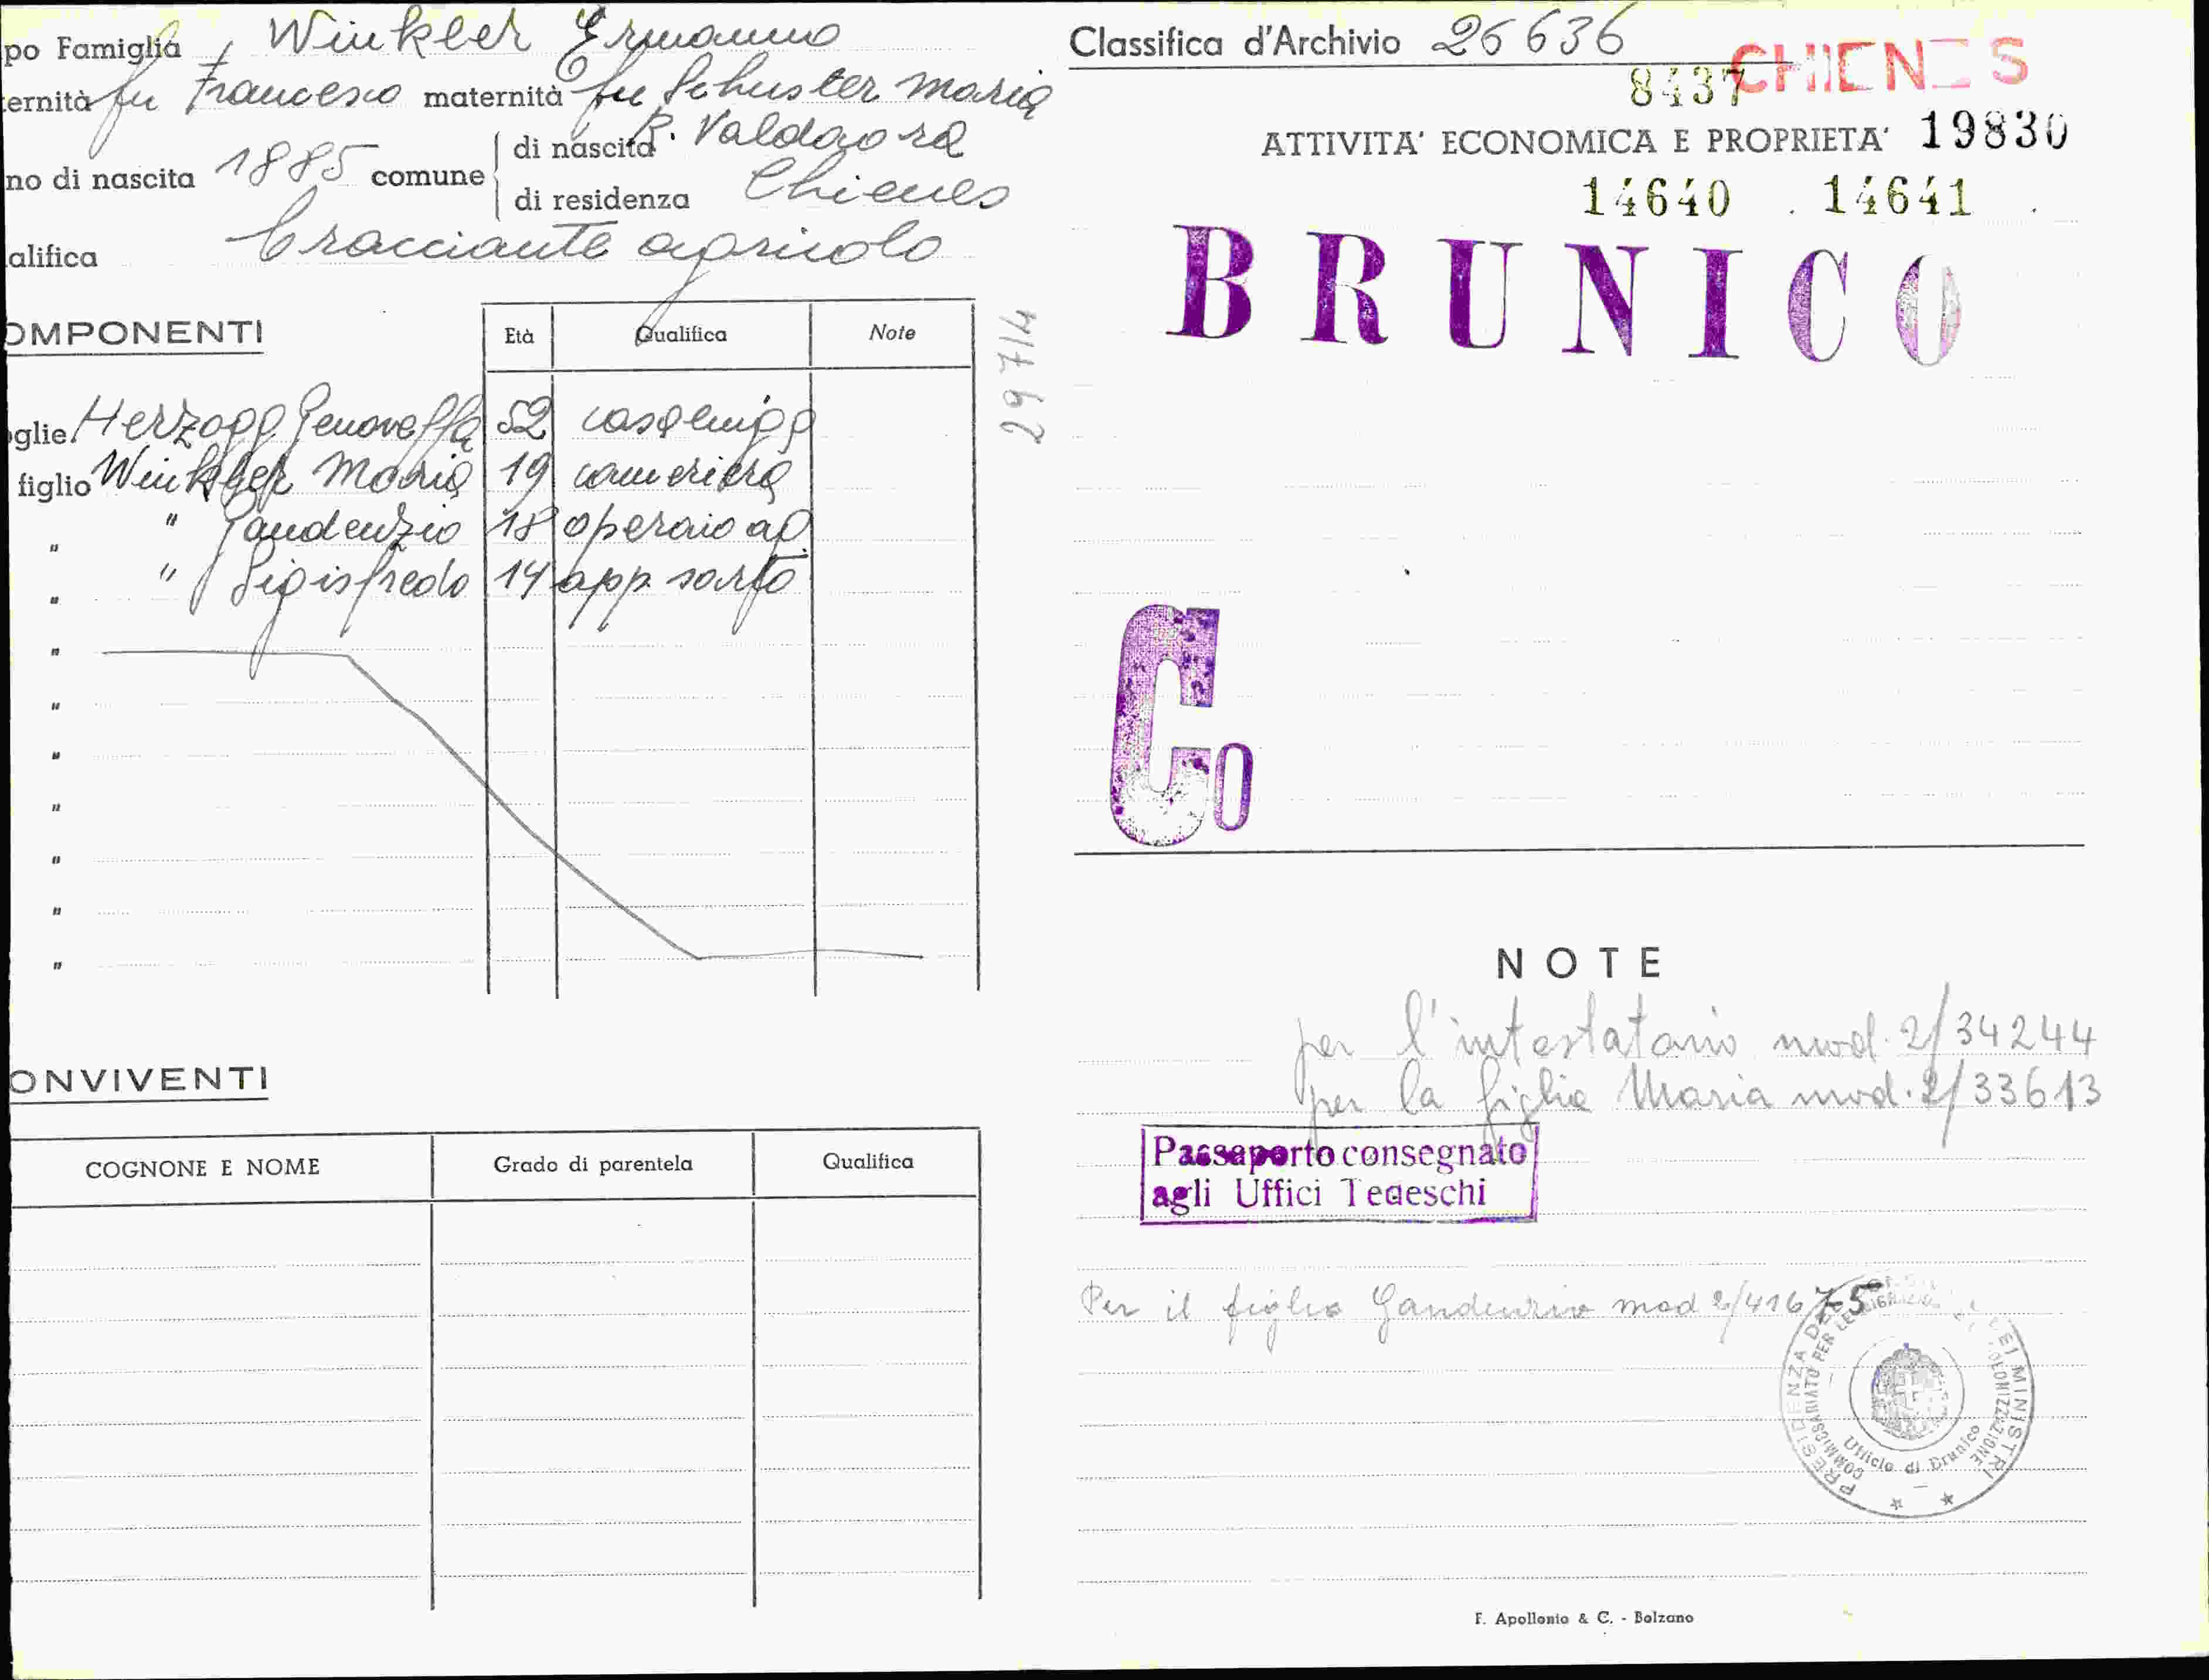 po Famiglia Winkler Ermanno
ernità fu Francesco maternità fu Schuster Maria
no di nascita 1885 comune di nascita R. Valdaora
di residenza Chienes
alifica bracciante agricolo
OMPONENTI Età Qualifica Note
oglie Herzogg Genoveffa 52 casaling
figlio Winkler Maria 19 cameriera
" " Gaudenzio 18 operaio ag.
" " Sigisfredo 14 app. sarto
"
"
"
"
"
"
"
29714
ONVIVENTI
COGNONE E NOME Grado di parentela Qualifica
Classifica d'Archivio 26636
CHIENES
8437
ATTIVITA' ECONOMICA E PROPRIETA' 19830
14640 . 14641
BRUNICO
Co
NOTE
per l'intestatario mod. 2/34244
per la figlia Maria mod. 2/33613
Passaporto consegnato
agli Uffici Tedeschi
Per il figlio Gaudenzio mod 2/41675
PRESIDENZA DEL CONSIGLIO DEI MINISTRI
COMMISSARIATO PER LE MIGRAZIONI E COLONIZZAZIONE
Ufficio di Brunico
F. Apollonio & C. - Bolzano